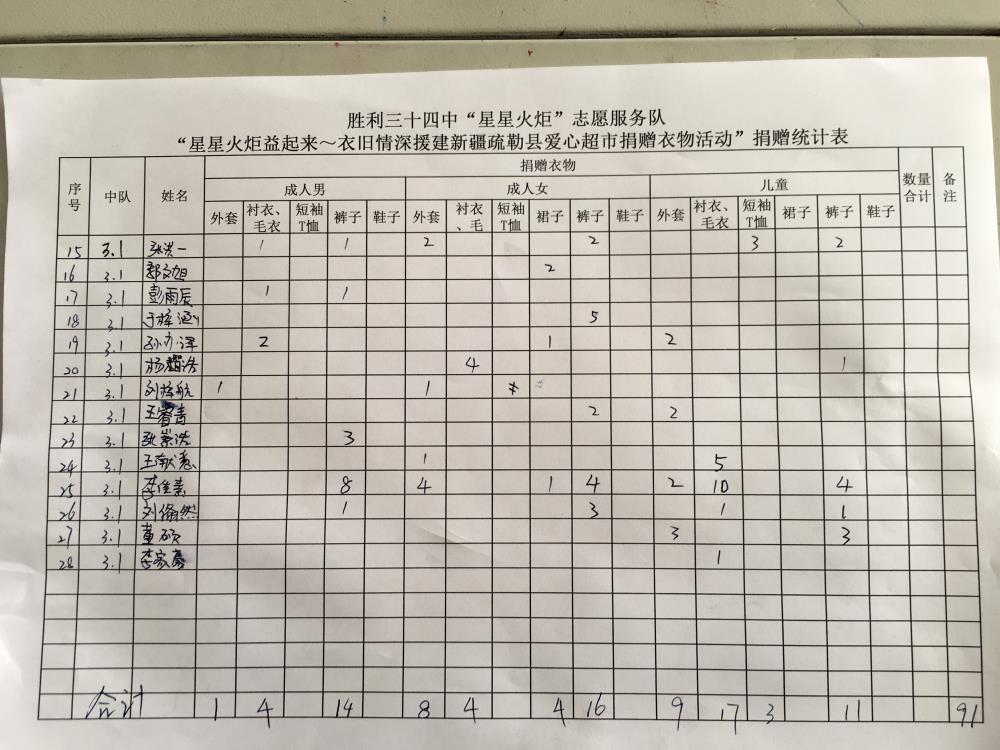 胜利三十四中“星星火炬”志愿服务队
“星星火炬益起来～衣旧情深援建新疆疏勒县爱心超市捐赠衣物活动”捐赠统计表
序号 中队 姓名 捐赠衣物 数量合计 备注
成人男 成人女 儿童
外套 衬衣、毛衣 短袖T恤 裤子 鞋子 外套 衬衣、毛 短袖T恤 裙子 裤子 鞋子 外套 衬衣、毛衣 短袖T恤 裙子 裤子 鞋子
15 3.1 张洪一 1 1 2 2 3 2
16 3.1 郭文旭 2
17 3.1 彭雨辰 1 1
18 3.1 于梓涵 5
19 3.1 孙 泽 2 1 2
20 3.1 杨 浩 4 1
21 3.1 刘梓航 1 1
22 3.1 王睿青 2 2
23 3.1 张崇浩 3
24 3.1 王献慧 1 5
25 3.1 李佳素 8 4 1 4 2 10 4
26 3.1 刘翛然 1 3 1 1
27 3.1 董硕 3 3
28 3.1 李家豪 1
合计 1 4 14 8 4 4 16 9 17 3 11 91